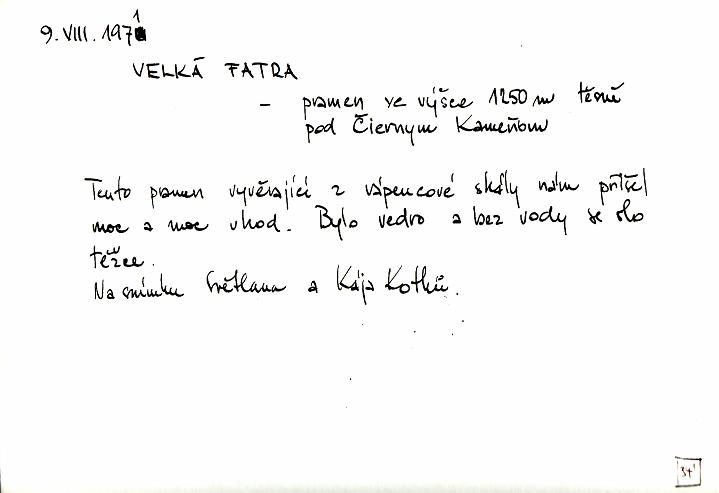 9. VIII. 1971
VELKÁ FATRA
- pramen ve výšce 1250 m těsně
pod Čiernym Kameňom
Tento pramen vyvěrající z vápencové skály nám přišel
moc a moc vhod. Bylo vedro a bez vody se šlo
těžce.
Na snímku Světlana a Kája Kotků.
34'